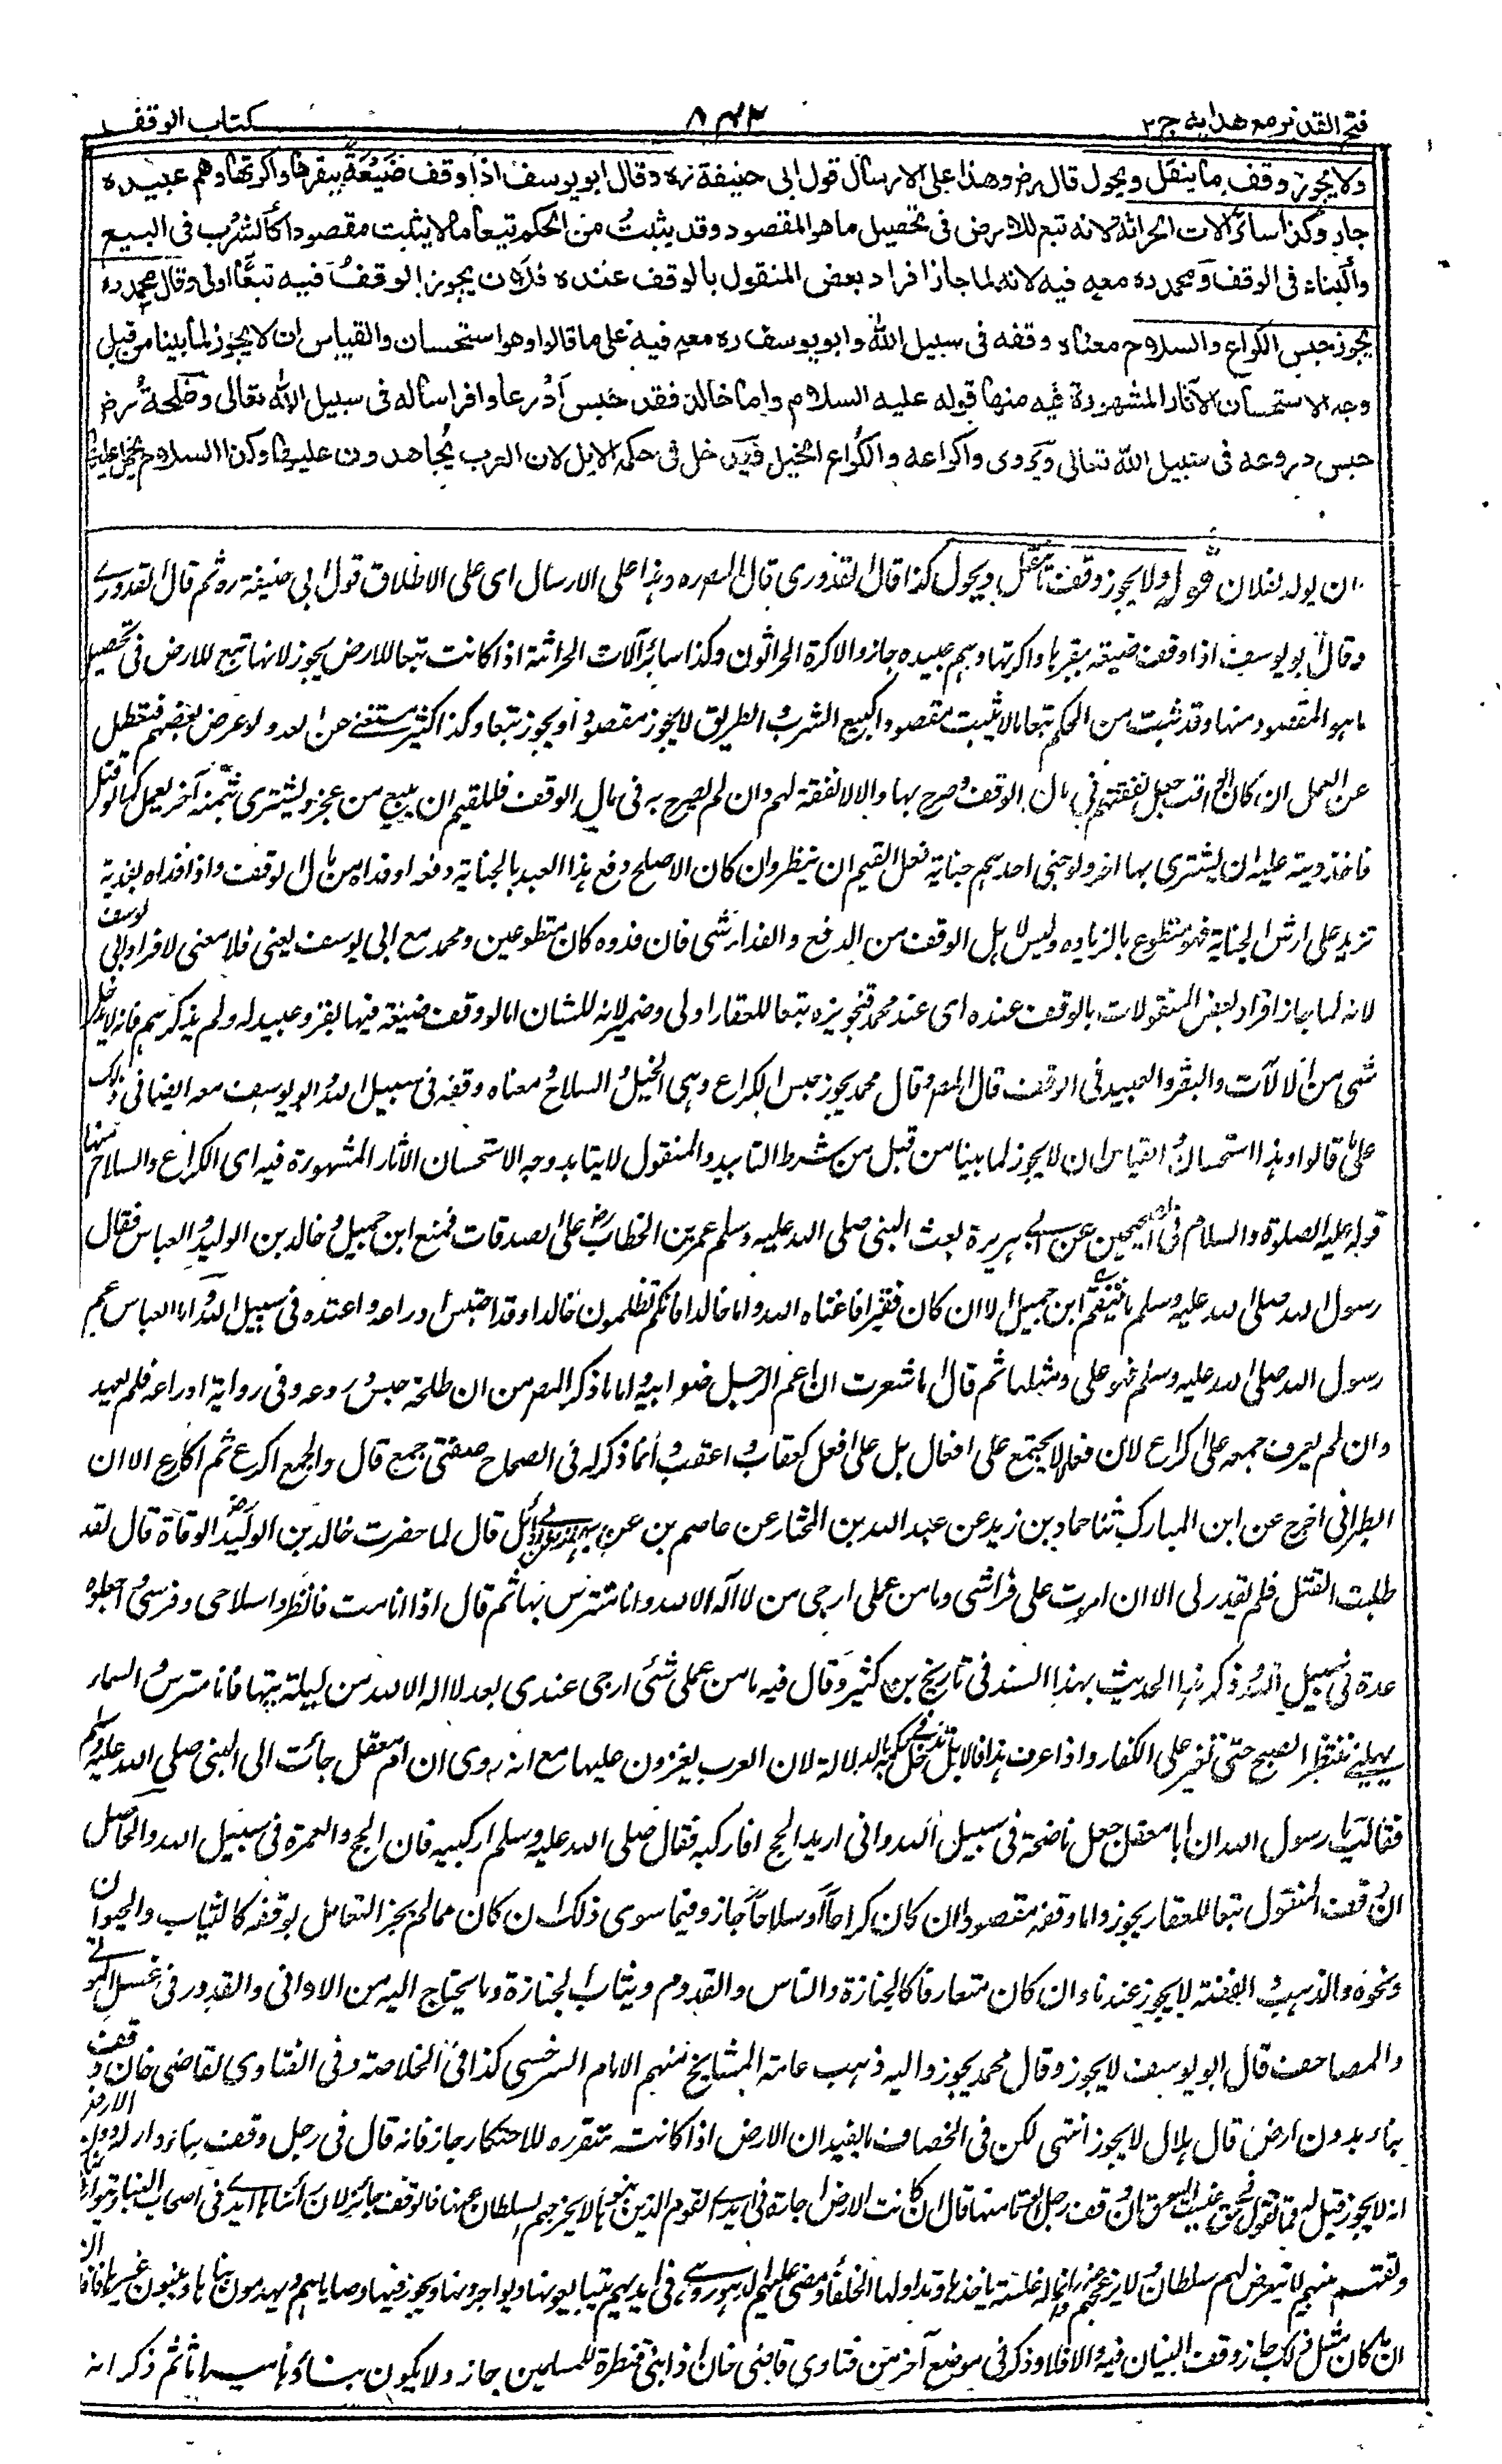 فتح القدير مع هدايه ج٢
٨٤٣
كتاب الوقف
ولا يجوز وقف ما ينقل ويحول قال رض وهذا على الارسال قول ابى حنيفة ره وقال ابو يوسف اذا وقف ضيعة ببقرها واكرتها وهم عبيده
جاز وكذا سائر الات الحراثة لانه تبع للارض فى تحصيل ما هو المقصود وقد يثبت من الحكم تبعا ما لا يثبت مقصودا كالشرب فى البيع
والبناء فى الوقف ومحمد ره معه فيه لانه لما جاز افراد بعض المنقول بالوقف عنده فلان يجوز الوقف فيه تبعا اولى وقال محمد ره
يجوز حبس الكراع والسلاح معناه وقفه فى سبيل الله وابو يوسف ره معه فيه على ما قالوا وهو استحسان والقياس ان لا يجوز لما بينا من قبل
وجه الاستحسان الآثار المشهورة فيه منها قوله عليه السلام واما خالد فقد حبس ادرعا وافراسا له فى سبيل الله تعالى وطلحة رض
حبس دروعه فى سبيل الله تعالى ويروى واكراعه والكراع الخيل ويدخل فى حكمه الابل لان العرب يجاهدون عليها وكذا السلاح يحمل عليها
ان يولد لفلان قوله ولا يجوز وقف ما ينقل ويحول كذا قال القدورى قال المصره وهذا على الارسال اى على الاطلاق قول ابى حنيفة ره ثم قال القدورى
وقال ابو يوسف اذا وقف ضيعة ببقرها واكرتها وهم عبيده جاز والاكرة الحراثون وكذا سائر آلات الحراثة اذا كانت تبعا للارض يجوز لانها تبع للارض فى تحصيل
ما هو المقصود منها وقد ثبت من الحكم تبعا ما لا يثبت مقصودا كبيع الشرب والطريق لا يجوز مقصودا ويجوز تبعا وكذا كثير مستغنى عن العد ولو عرض بعضهم فتعطل
عن العمل ان كان الواقف جعل نفقتهم فى مال الوقف وصرح بها والا لا نفقة لهم وان لم يصرح به فى مال الوقف فللقيم ان يبيع من عجز ويشترى بثمنه آخر يعمل كما لو قتل
فاخذ ديته عليه ان يشترى بها اخر ولو جنى احدهم جناية فعل القيم ان ينظر وان كان الاصلح دفع هذا العبد بالجناية دفعه او فداه من مال الوقف واذا فداه بفدية
تزيد على ارش الجناية فهو متطوع بالزيادة وليس لاهل الوقف من الدفع والفداء شى فان فدوه كان متطوعين ومحمد مع ابى يوسف يعنى فلا معنى لافراد ابى يوسف
لانه لما جاز افراد بعض المنقولات بالوقف عنده اى عند محمد فتجويزه تبعا للعقار اولى وضمير لانه للشان اما لو وقف ضيعة فيها بقر وعبيد له ولم يذكرهم فانه لا يدخل
شى من الآلات والبقر والعبيد فى الوقف قال المصر وقال محمد يجوز حبس الكراع وهى الخيل والسلاح ومعناه وقفه فى سبيل الله وابو يوسف معه ايضا فى ذلك
على ما قالوا وهذا استحسان والقياس ان لا يجوز لما بينا من قبل من شرط التابيد والمنقول لا يتابد وجه الاستحسان الآثار المشهورة فيه اى الكراع والسلاح منها
قوله عليه الصلوة والسلام فى الصحيحين عن ابى هريرة بعث النبى صلى الله عليه وسلم عمر بن الخطاب رض على الصدقات فمنع ابن جميل وخالد بن الوليد والعباس فقال
رسول الله صلى الله عليه وسلم ما ينقم ابن جميل الا ان كان فقيرا فاغناه الله واما خالدا فانكم تظلمون خالدا وقد احتبس ادراعه واعتده فى سبيل الله واما العباس عم
رسول الله صلى الله عليه وسلم فهو على ومثلها ثم قال اما شعرت ان عم الرجل صنو ابيه واما ما ذكر المصر من ان طلحة حبس دروعه وفى رواية ادراعه فلم يعهد
وان لم يعرف جمعه على اكراع لان فعالا لا يجتمع على افعال بل على افعل كعقاب واعقب وانما ذكره فى الصحاح صنفتى جمع قال والجمع اكرع ثم اكارع الا ان
الطبرانى اخرج عن ابن المبارك ثنا حماد بن زيد عن عبد الله بن المختار عن عاصم بن بهدلة عن ابى وائل قال لما حضرت خالد بن الوليد رض الوفاة قال لقد
طلبت القتل فلم يقدر لى الا ان اموت على فراشى وما من عملى ارجى من لا آله الا الله وانا متترس بها ثم قال اذا انا مت فانظروا سلاحى وفرسى واجعلوه
عدة فى سبيل الله وذكر هذا الحديث بهذا السند فى تاريخ بن كثير وقال فيه ما من عملى شئى ارجى عندى بعد لا اله الا الله من ليلة بتها وانا مترس السماء
يهلنى ننتظر الصبح حتى نغير على الكفار واذا عرف هذا فالابل تدخل فى حكمه بالدلالة لان العرب يغزون عليها مع انه روى ان ام معقل جائت الى النبى صلى الله عليه وسلم
فقالت يا رسول الله ان ابا معقل جعل ناضحة فى سبيل الله وانى اريد الحج افاركبه فقال صلى الله عليه وسلم اركبيه فان الحج والعمرة فى سبيل الله والحاصل
ان وقف المنقول تبعا للعقار يجوز واما وقفه مقصودا ان كان كراعا او سلاحا جاز وفيما سوى ذلك ان كان مما لم يجز التعامل بوقفه كالثياب والحيوان
ونحوه والذهب والفضة لا يجوز عندنا وان كان متعارفا كالجنازة والفاس والقدوم وثياب الجنازة وما يحتاج اليه من الاوانى والقدور فى غسل الموتى
والمصاحف قال ابو يوسف لا يجوز وقال محمد يجوز واليه ذهب عامة المشايخ منهم الامام السرخسى كذا فى الخلاصة وفى الفتاوى لقاضى خان وقف
بناء بدون ارض قال هلال لا يجوز انتهى لكن فى الخصاف ما يفيد ان الارض اذا كانت متقررة للاحتكار جاز فانه قال فى رجل وقف بناء دار له دون الارض
انه لا يجوز قيل له فما تقول فى حق حوانيت السوق ان وقف رجل حانوتا منها قال ان كانت الارض اجارة فى ايدى القوم الذين بنوها لا يخرجهم السلطان عنها فالوقف جائز لان رأيناها فى ايدى اصحاب البناء توارثوها
وتقسم بينهم لا يتعرض لهم سلطان ولا يزعجهم وانما له غلة ياخذها وتداولها الخلفاء ومضى عليها الدهور وهى فى ايديهم يتبايعونها ويواجرونها ويجوز فيها وصاياهم ويهدمون بناءها ويبنون غيرها فافاد
ان ما كان مثل ذلك جاز وقف البنيان فيه والا فلا وذكر فى موضع آخر من فتاوى قاضى خان اذا بنى قنطرة للمسلمين جاز ولا يكون بناؤها ميراثا ثم ذكر انه